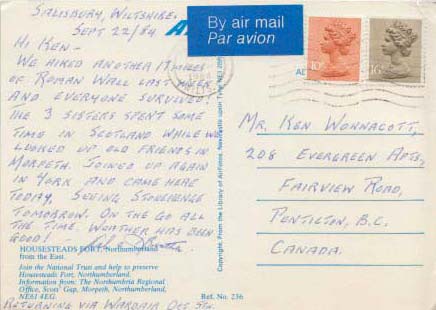 Salisbury, Wiltshire.
Sept 22/84
Hi Ken -
We hiked another 17 miles
of Roman Wall last week
and everyone survived!
The 3 sisters spent some
time in Scotland while we
looked up old friends in
Morpeth. Joined up again
in York and came here
today. Seeing Stonehenge
tomorrow. On the go all
the time. Weather has been
good!
HOUSESTEADS FORT, Northumberland
from the East.
Join the National Trust and help to preserve
Housesteads Fort, Northumberland.
Information from: The Northumbria Regional
Office, Scots' Gap, Morpeth, Northumberland,
NE61 4EG.
Returning via Wardair Oct 5th.
Ref. No. 236
Copyright. From the Library of Airfotos, Newcastle upon Tyne NE3
By air mail
Par avion
10P
16P
Mr. Ken Wonnacott,
208 Evergreen Apts,
Fairview Road,
Penticton, B.C.
Canada.